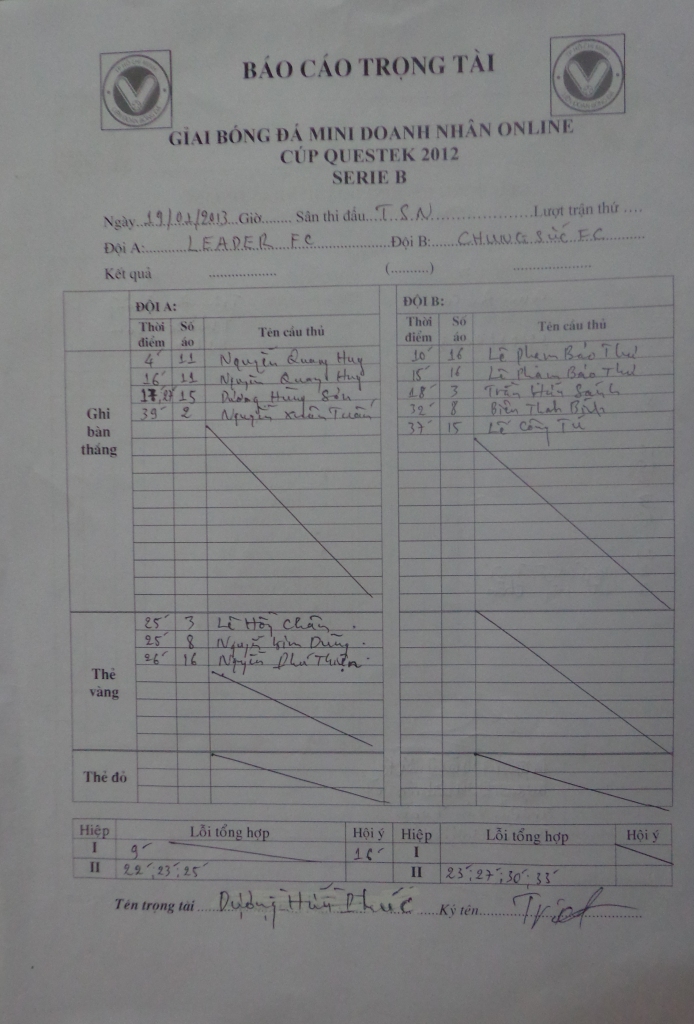 BÁO CÁO TRỌNG TÀI
GIẢI BÓNG ĐÁ MINI DOANH NHÂN ONLINE
CÚP QUESTEK 2012
SERIE B
Ngày 19/01/2013 Giờ........ Sân thi đấu T.S.N ........................Lượt trận thứ ....
Đội A: LEADER FC Đội B: CHUNG SỨC F.C
Kết quả .................. (..........) ....................
ĐỘI A: ĐỘI B:
Thời điểm Số áo Tên cầu thủ Thời điểm Số áo Tên cầu thủ
Ghi bàn thắng
4' 11 Nguyễn Quang Huy 10' 16 Lê Phạm Bảo Thư
16' 11 Nguyễn Quang Huy 15' 16 Lê Phạm Bảo Thư
17', 27' 15 Dương Hùng Sơn 18' 3 Trần Hữu
39' 2 Nguyễn Xuân Tuấn 32' 8 Biên Thanh Bình
37' 15 Lê Công Tú
Thẻ vàng
25' 3 Lê Hồng Chân
25' 8 Nguyễn Kim Dũng
26' 16 Nguyễn Phú
Thẻ đỏ
Hiệp Lỗi tổng hợp Hội ý Hiệp Lỗi tổng hợp Hội ý
I 9' I
II 22', 23', 25' II 23', 27', 30', 33'
Tên trọng tài Dương Hữu Phúc Ký tên